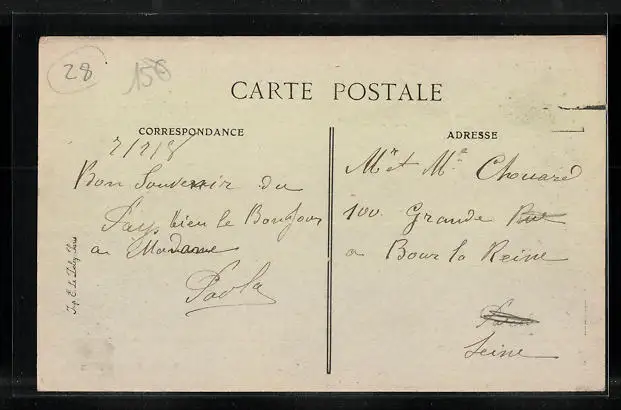 28
150
CARTE POSTALE
CORRESPONDANCE
ADRESSE
7/7/18
Bon Souvenir du
Pays bien le Bonjour
a Madame
Paula
Mr et Me Chouard
100 Grande Rue
a Bour la Reine
Seine
Imp. E. Le Deley, Paris